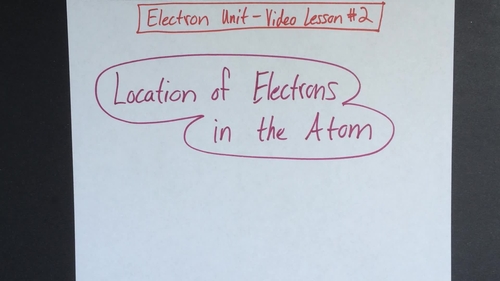 Electron Unit - Video Lesson #2
Location of Electrons
in the Atom